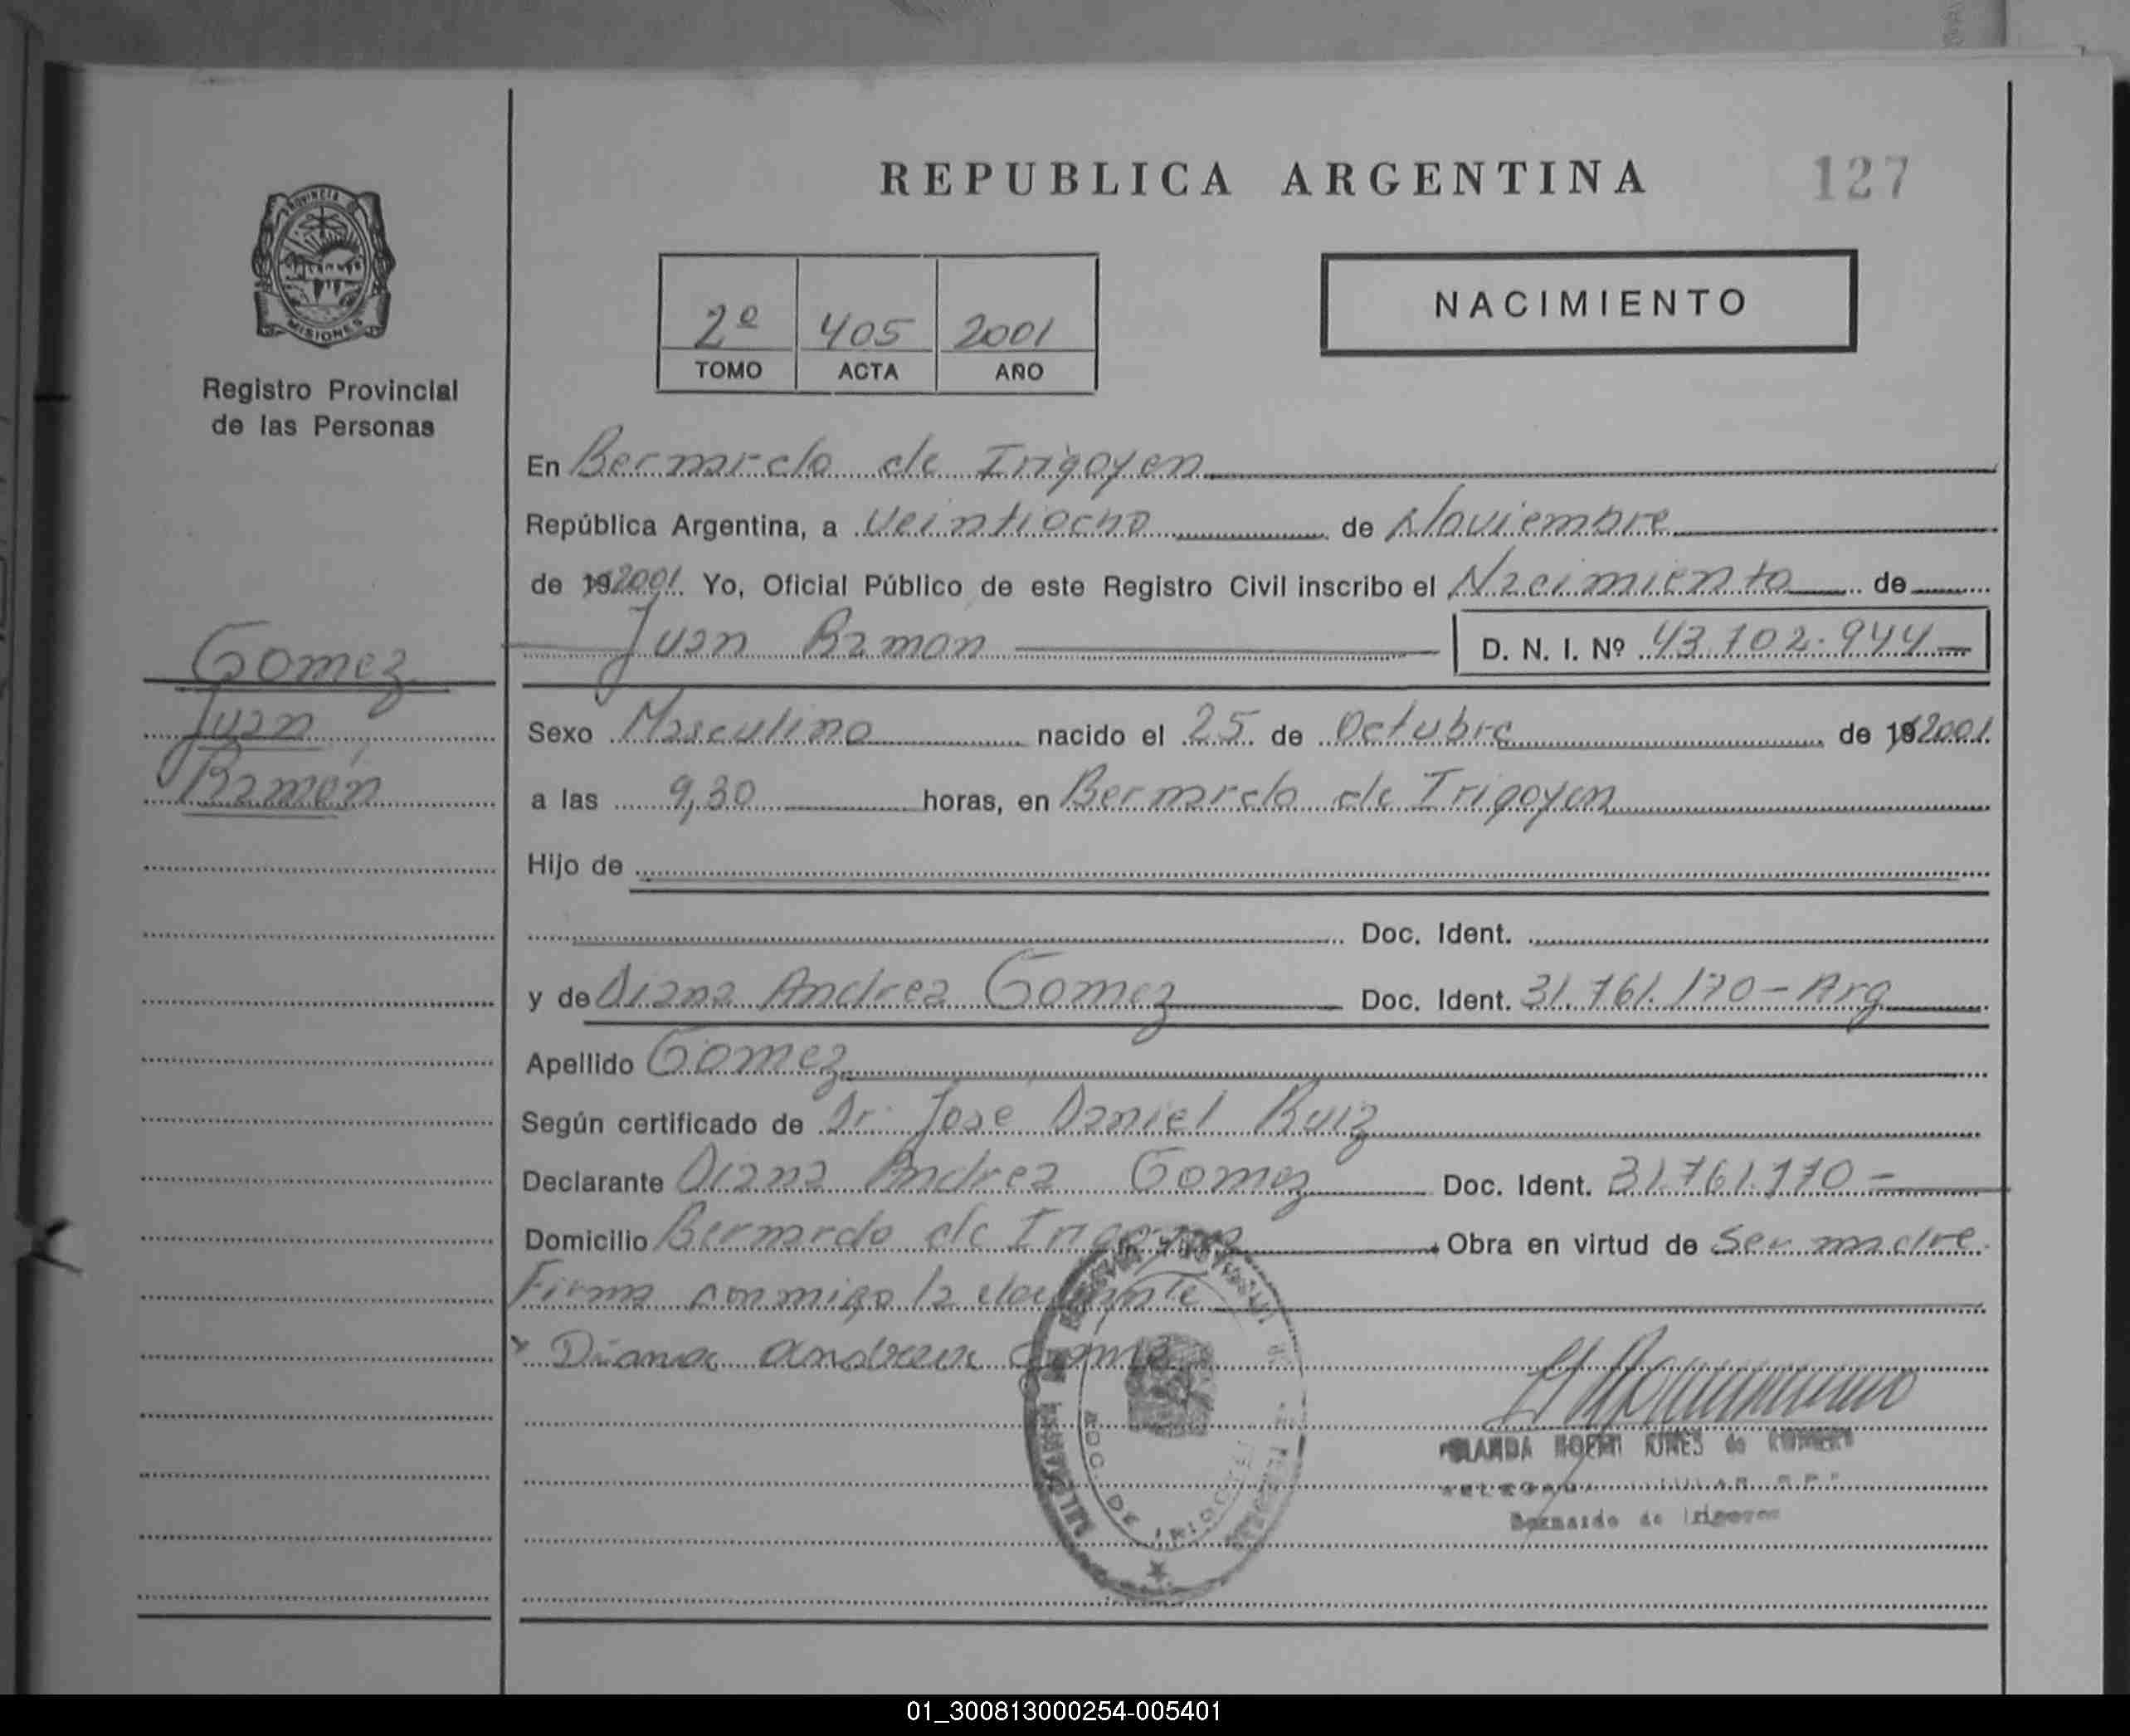 REPUBLICA ARGENTINA
127
PROVINCIA DE
MISIONES
Registro Provincial
de las Personas
2º 405 2001
TOMO ACTA AÑO
NACIMIENTO
En Bernardo de Irigoyen
República Argentina, a Veintiocho de Noviembre
de 192001. Yo, Oficial Público de este Registro Civil inscribo el Nacimiento de
Juan Ramon D. N. I. Nº 43.702.944
Gomez
Juan
Ramón
Sexo Masculino nacido el 25 de Octubre de 192001.
a las 9,30 horas, en Bernardo de Irigoyen
Hijo de
Doc. Ident.
y de Diana Andrea Gomez Doc. Ident. 31.761.170 - Arg
Apellido Gomez
Según certificado de Dr. Jose Daniel Ruiz
Declarante Diana Andrea Gomez Doc. Ident. 31.761.170 -
Domicilio Bernardo de Irigoyen Obra en virtud de Ser madre.
Firma conmigo la declarante
x Diana andrea Gomez
NOEMI de
Bernardo de Irigoyen
01_300813000254-005401